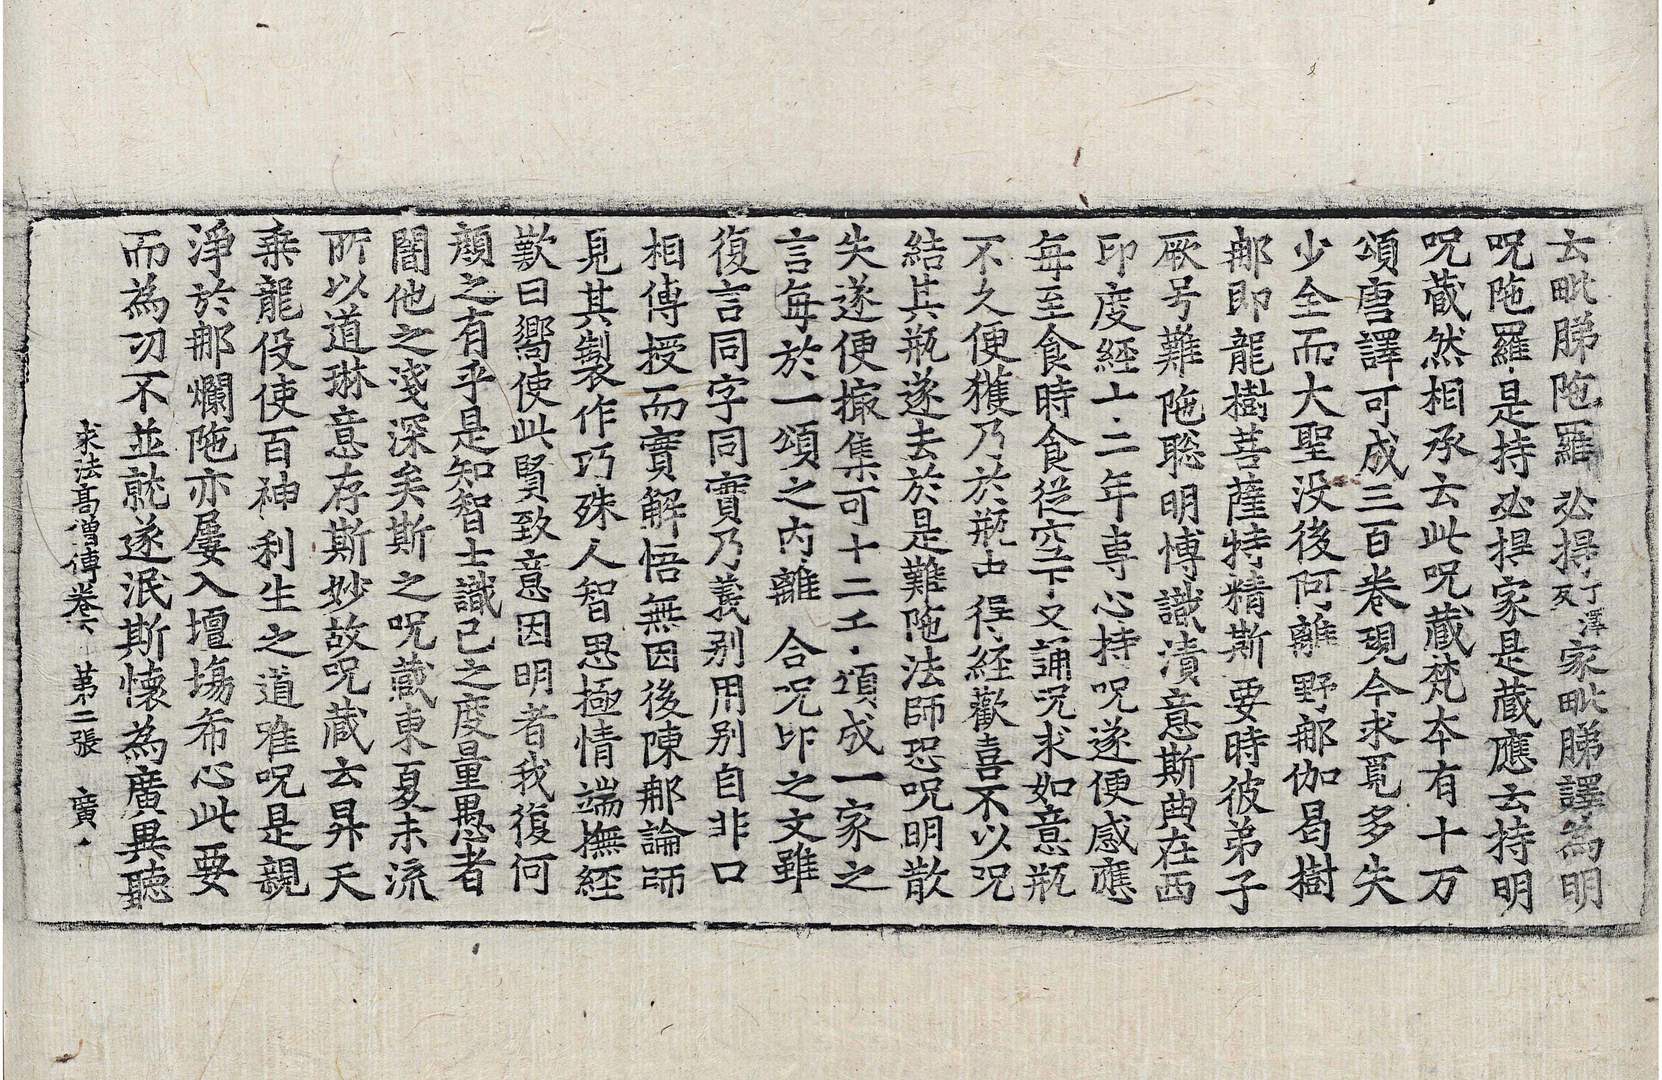 云毗睇陁羅必㨂丁澤反家毗睇譯為明
呪陁羅是持必㨂家是蔵應云持明
呪蔵然相承云此呪蔵梵夲有十万
頌唐譯可成三百卷現今求覓多失
少全而大聖没後阿離野那伽曷樹
那即龍樹菩薩特精斯要時彼弟子
厥号難陁聡明博識漬意斯典在西
印度經十二年專心持呪遂便感應
每至食時食從空下又誦呪求如意瓶
不久便獲乃於瓶中得經歡喜不以呪
結其瓶遂去於是難陁法師恐呪明散
失遂便撮集可十二千頌成一家之
言每於一頌之内離合呪印之文雖
復言同字同實乃義別用別自非口
相傳授而實解悟無因後陳那論師
見其製作巧殊人智思極情端撫經
歎曰嚮使此賢致意因明者我復何
顔之有乎是知智士識己之度量愚者
闇他之淺深矣斯之呪蔵東夏未流
所以道琳意存斯妙故呪蔵云昇天
乘龍役使百神利生之道唯呪是親
淨於那爛陁亦屢入壇場希心此要
而為功不並就遂泯斯懷為廣異聽
求法髙僧傳卷下　第二張　廣